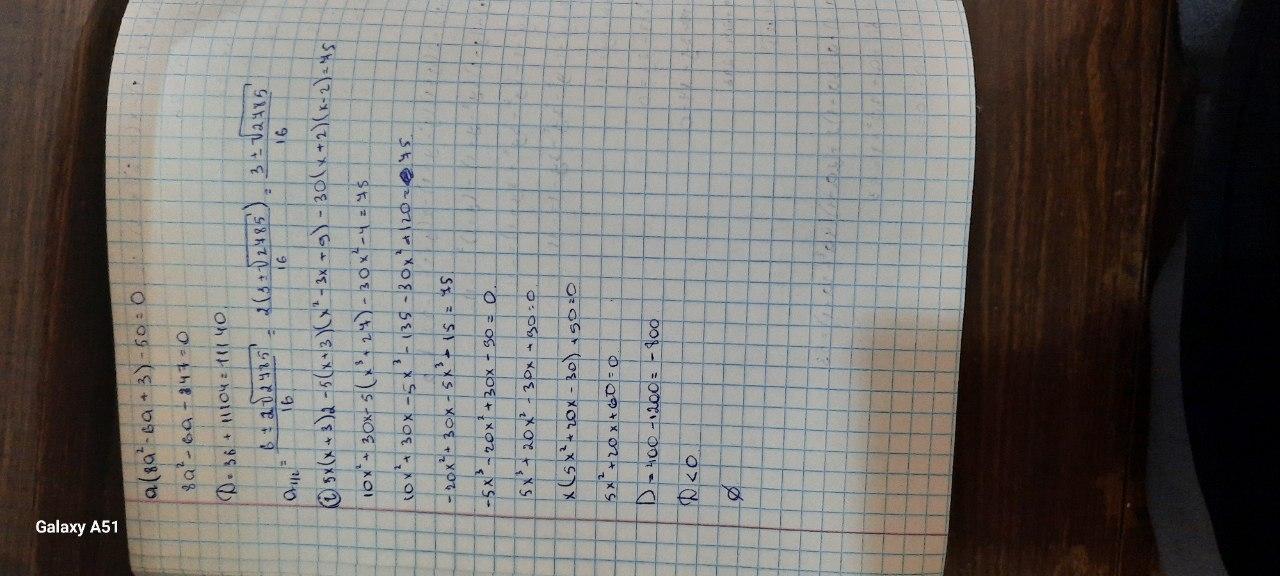 a(8a²-6a+3)-50=0
8a²-6a-347=0
D=36+11104=11140
a₁/₂= 6±2√2785 / 16 = 2(3±√2785) / 16 = 3±√2785 / 16
② 5x(x+3)2-5(x+3)(x²-3x+9)-30(x+2)(x-2)=75
10x²+30x-5(x³+27)-30x²-4=75
10x²+30x-5x³-135-30x²+120=75
-20x²+30x-5x³-15=75
-5x³-20x²+30x-90=0
5x³+20x²-30x+90=0
x(5x²+20x-30)+90=0
5x²+20x+60=0
D=400-1200=-800
D<0
∅
Galaxy A51